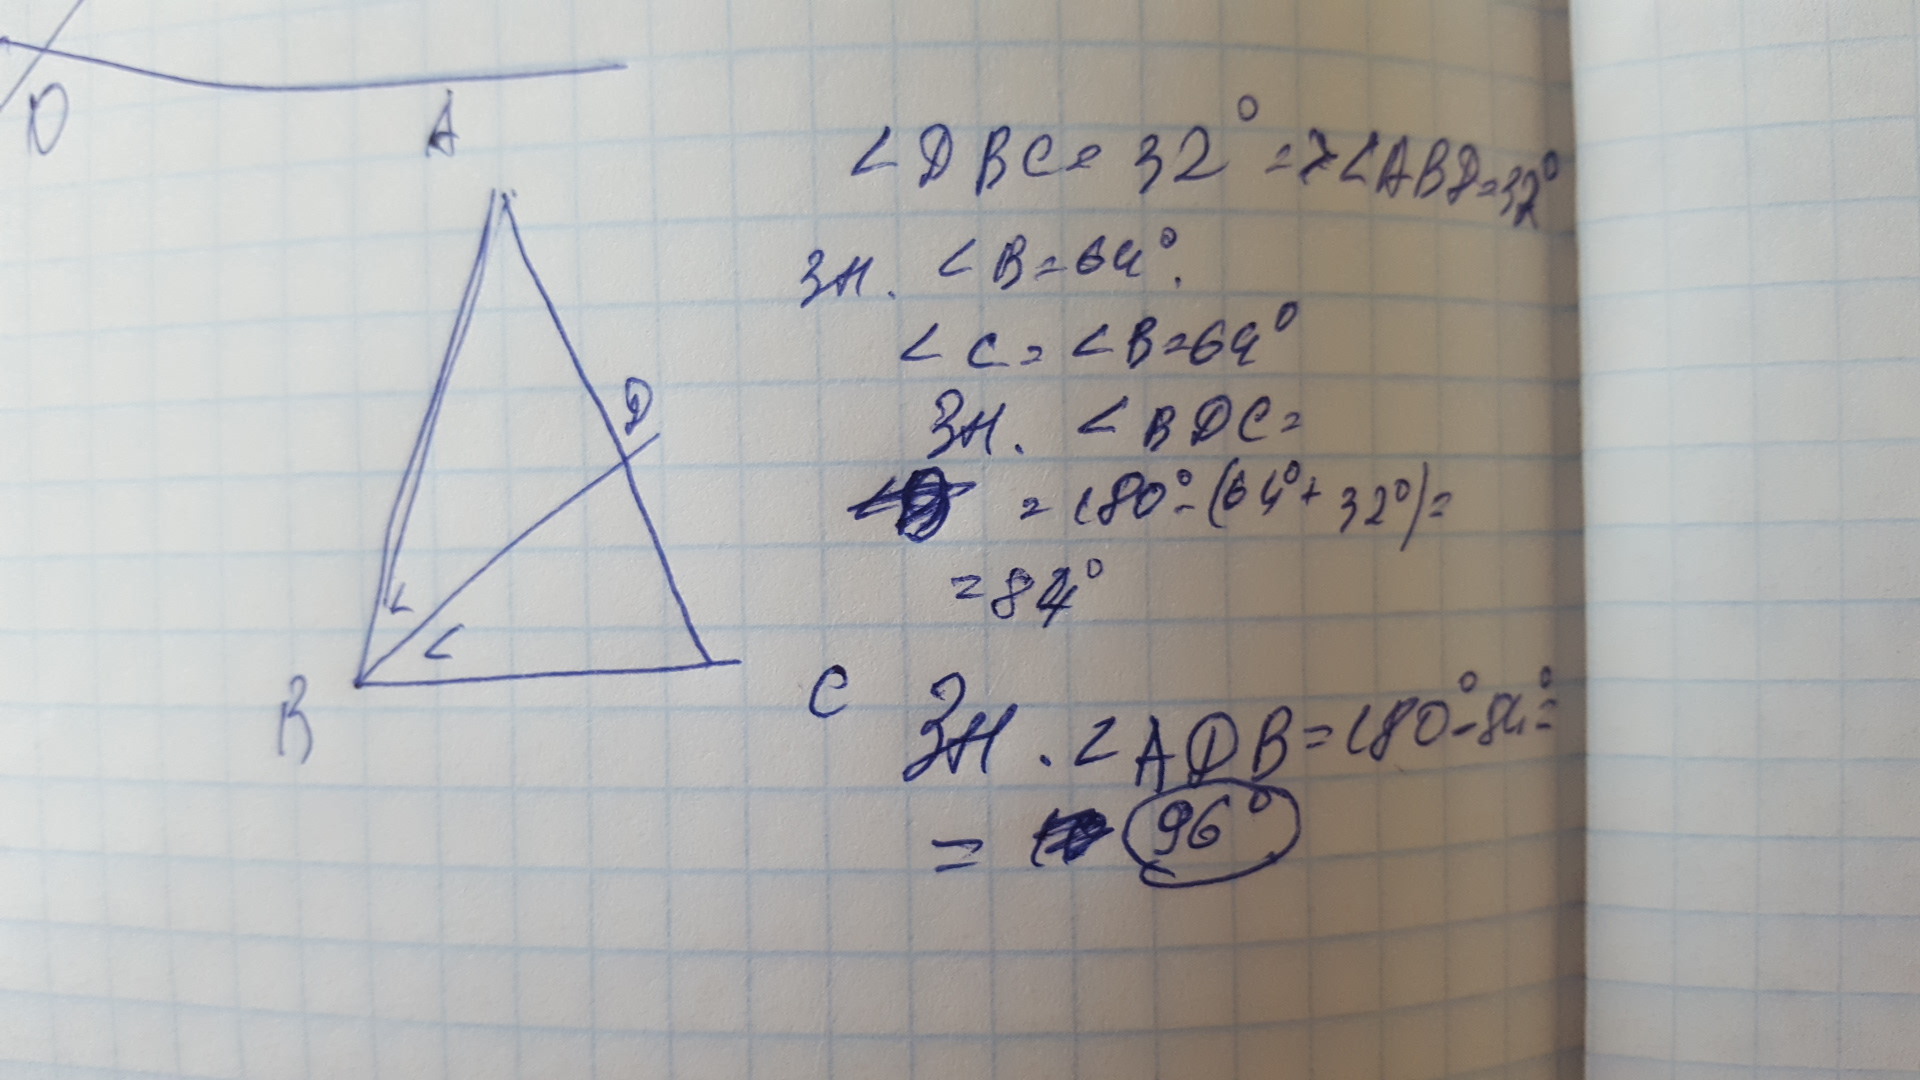 D
A
∠DBC = 32° => ∠ABD = 32°
Зн. ∠B = 64°.
∠C = ∠B = 64°
D
Зн. ∠BDC =
= 180° - (64° + 32°) =
= 84°
B
C
Зн. ∠ADB = 180° - 84° =
= 96°